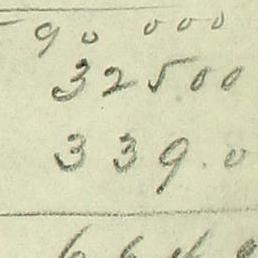 90 000
32500
339.0